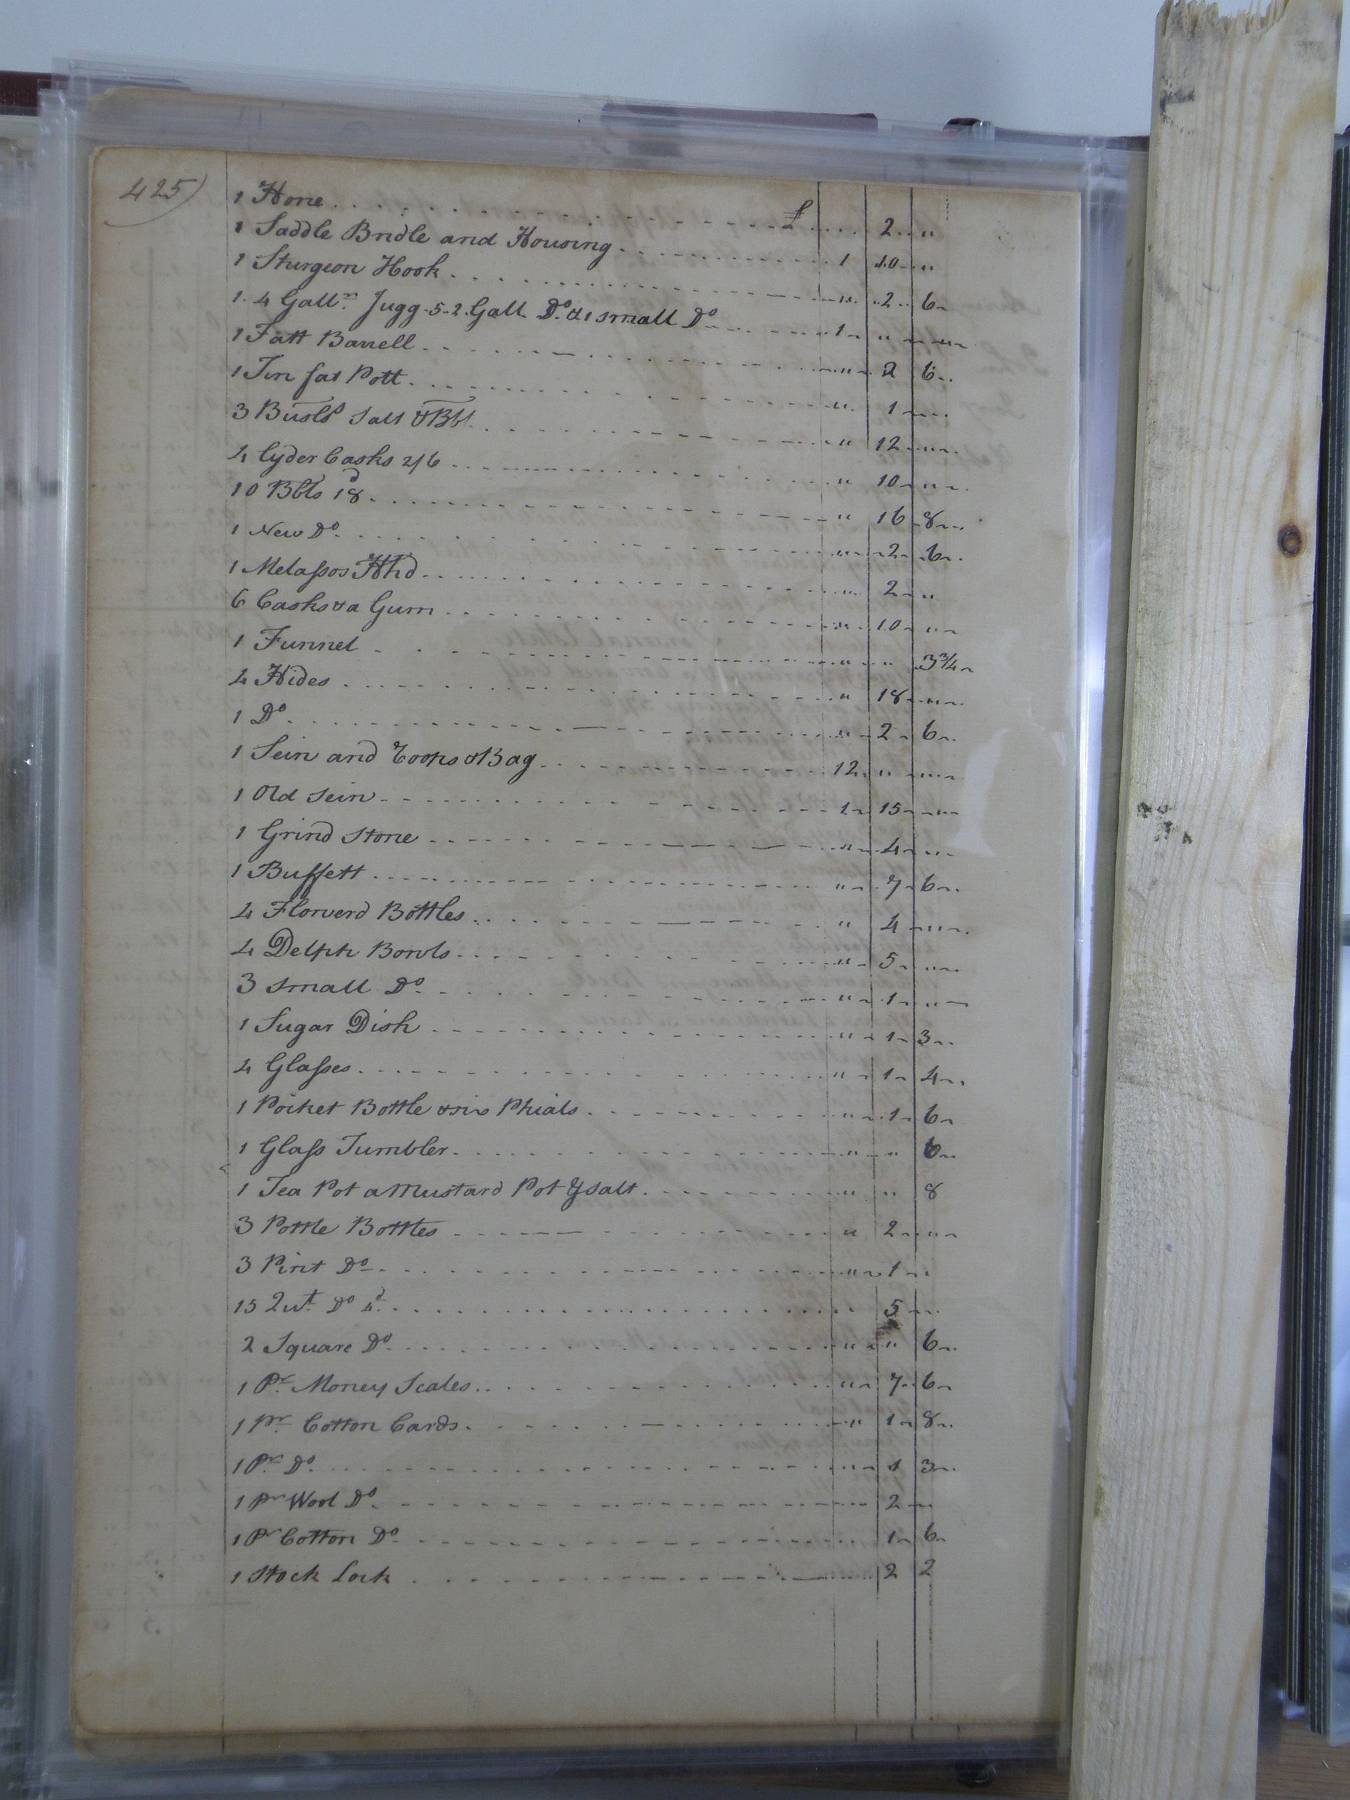 425)
1 Hone . . . . £ . . . . 2 . . "
1 Saddle Bridle and Housing . . . . 1 10 "
1 Sturgeon Hook . . . . " 2 6
1. 4 Gall.n Jugg. 5. 2. Gall Do. & 1 small Do . . . . 1 " "
1 Fatt Barrell . . . . " 2 6
1 Tin fat Pott . . . . " 1 "
3 Bushls Salt & Bbl . . . . " 12 "
4 Cyder Casks 2/6 . . . . " 10 "
10 Bbls 18d . . . . " 16 8
1 New Do . . . . " 2 6
1 Melassos Hhd . . . . " 2 "
6 Casks & a Gum . . . . " 10 "
1 Funnel . . . . " " 3¾
4 Hides . . . . " 18 "
1 Do . . . . " 2 6
1 Sein and Roops & Bag . . . . 12 " "
1 Old Sein . . . . 1 15 "
1 Grind Stone . . . . " 4 "
1 Buffett . . . . " 7 6
4 Flowerd Bottles . . . . " 4 "
4 Delph Bowls . . . . " 5 "
3 small Do . . . . " 1 "
1 Sugar Dish . . . . " 1 3
4 Glasses . . . . " 1 4
1 Pocket Bottle & six Phials . . . . " 1 6
1 Glass Tumbler . . . . " " 6
1 Tea Pot a Mustard Pot & Salt . . . . " " 8
3 Pottle Bottles . . . . " 2 "
3 Pint Do . . . . " 1 "
15 Qut. Do 4d . . . . 5 "
2 Square Do . . . . " " 6
1 Pr. Money Scales . . . . " 7 6
1 pr. Cotton Cards . . . . " 1 8
1 Pr. Do . . . . " 1 3
1 Pr Wool Do . . . . 2 "
1 Pr Cotton Do . . . . 1 6
1 Stock Lock . . . . 2 2